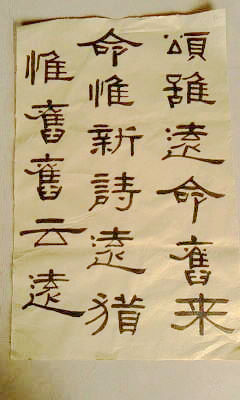 頌雖遠命舊来
命惟新詩遠猶
惟舊舊云遠